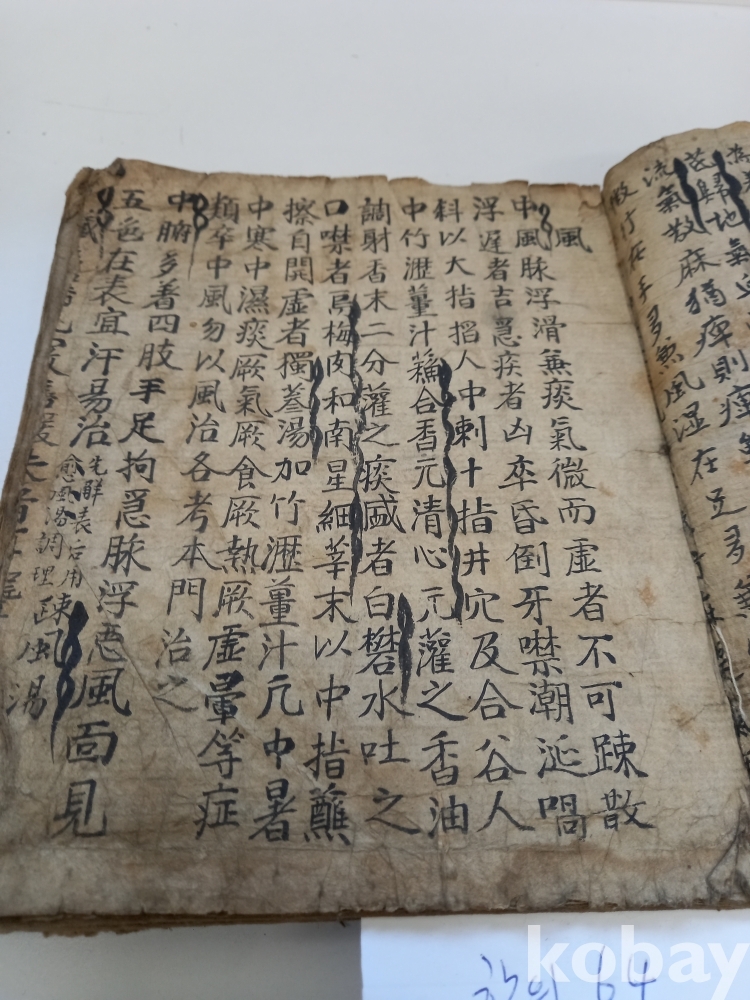 歸地氣
流氣散麻猶痺則
在手多兼風湿在足多
風
中風脉浮滑兼痰氣微而虛者不可踈散
浮遲者吉急疾者凶卒昏倒牙噤潮涎喎
斜以大指搯人中刺十指井穴及合谷人
中竹瀝薑汁蘓合香元清心元灌之香油
調射香末二分灌之痰盛者白礬水吐之
口噤者烏梅肉和南星細莘末以中指蘸
擦自開虛者獨蔘湯加竹瀝薑汁亢中暑
中寒中濕痰厥氣厥食厥熱厥虛暈等症
類卒中風勿以風治各考本門治之
中腑多着四肢手足拘急脉浮惡風面見
五色在表宜汗易治
先解表后用踈風湯
愈風湯調理
64
kobay